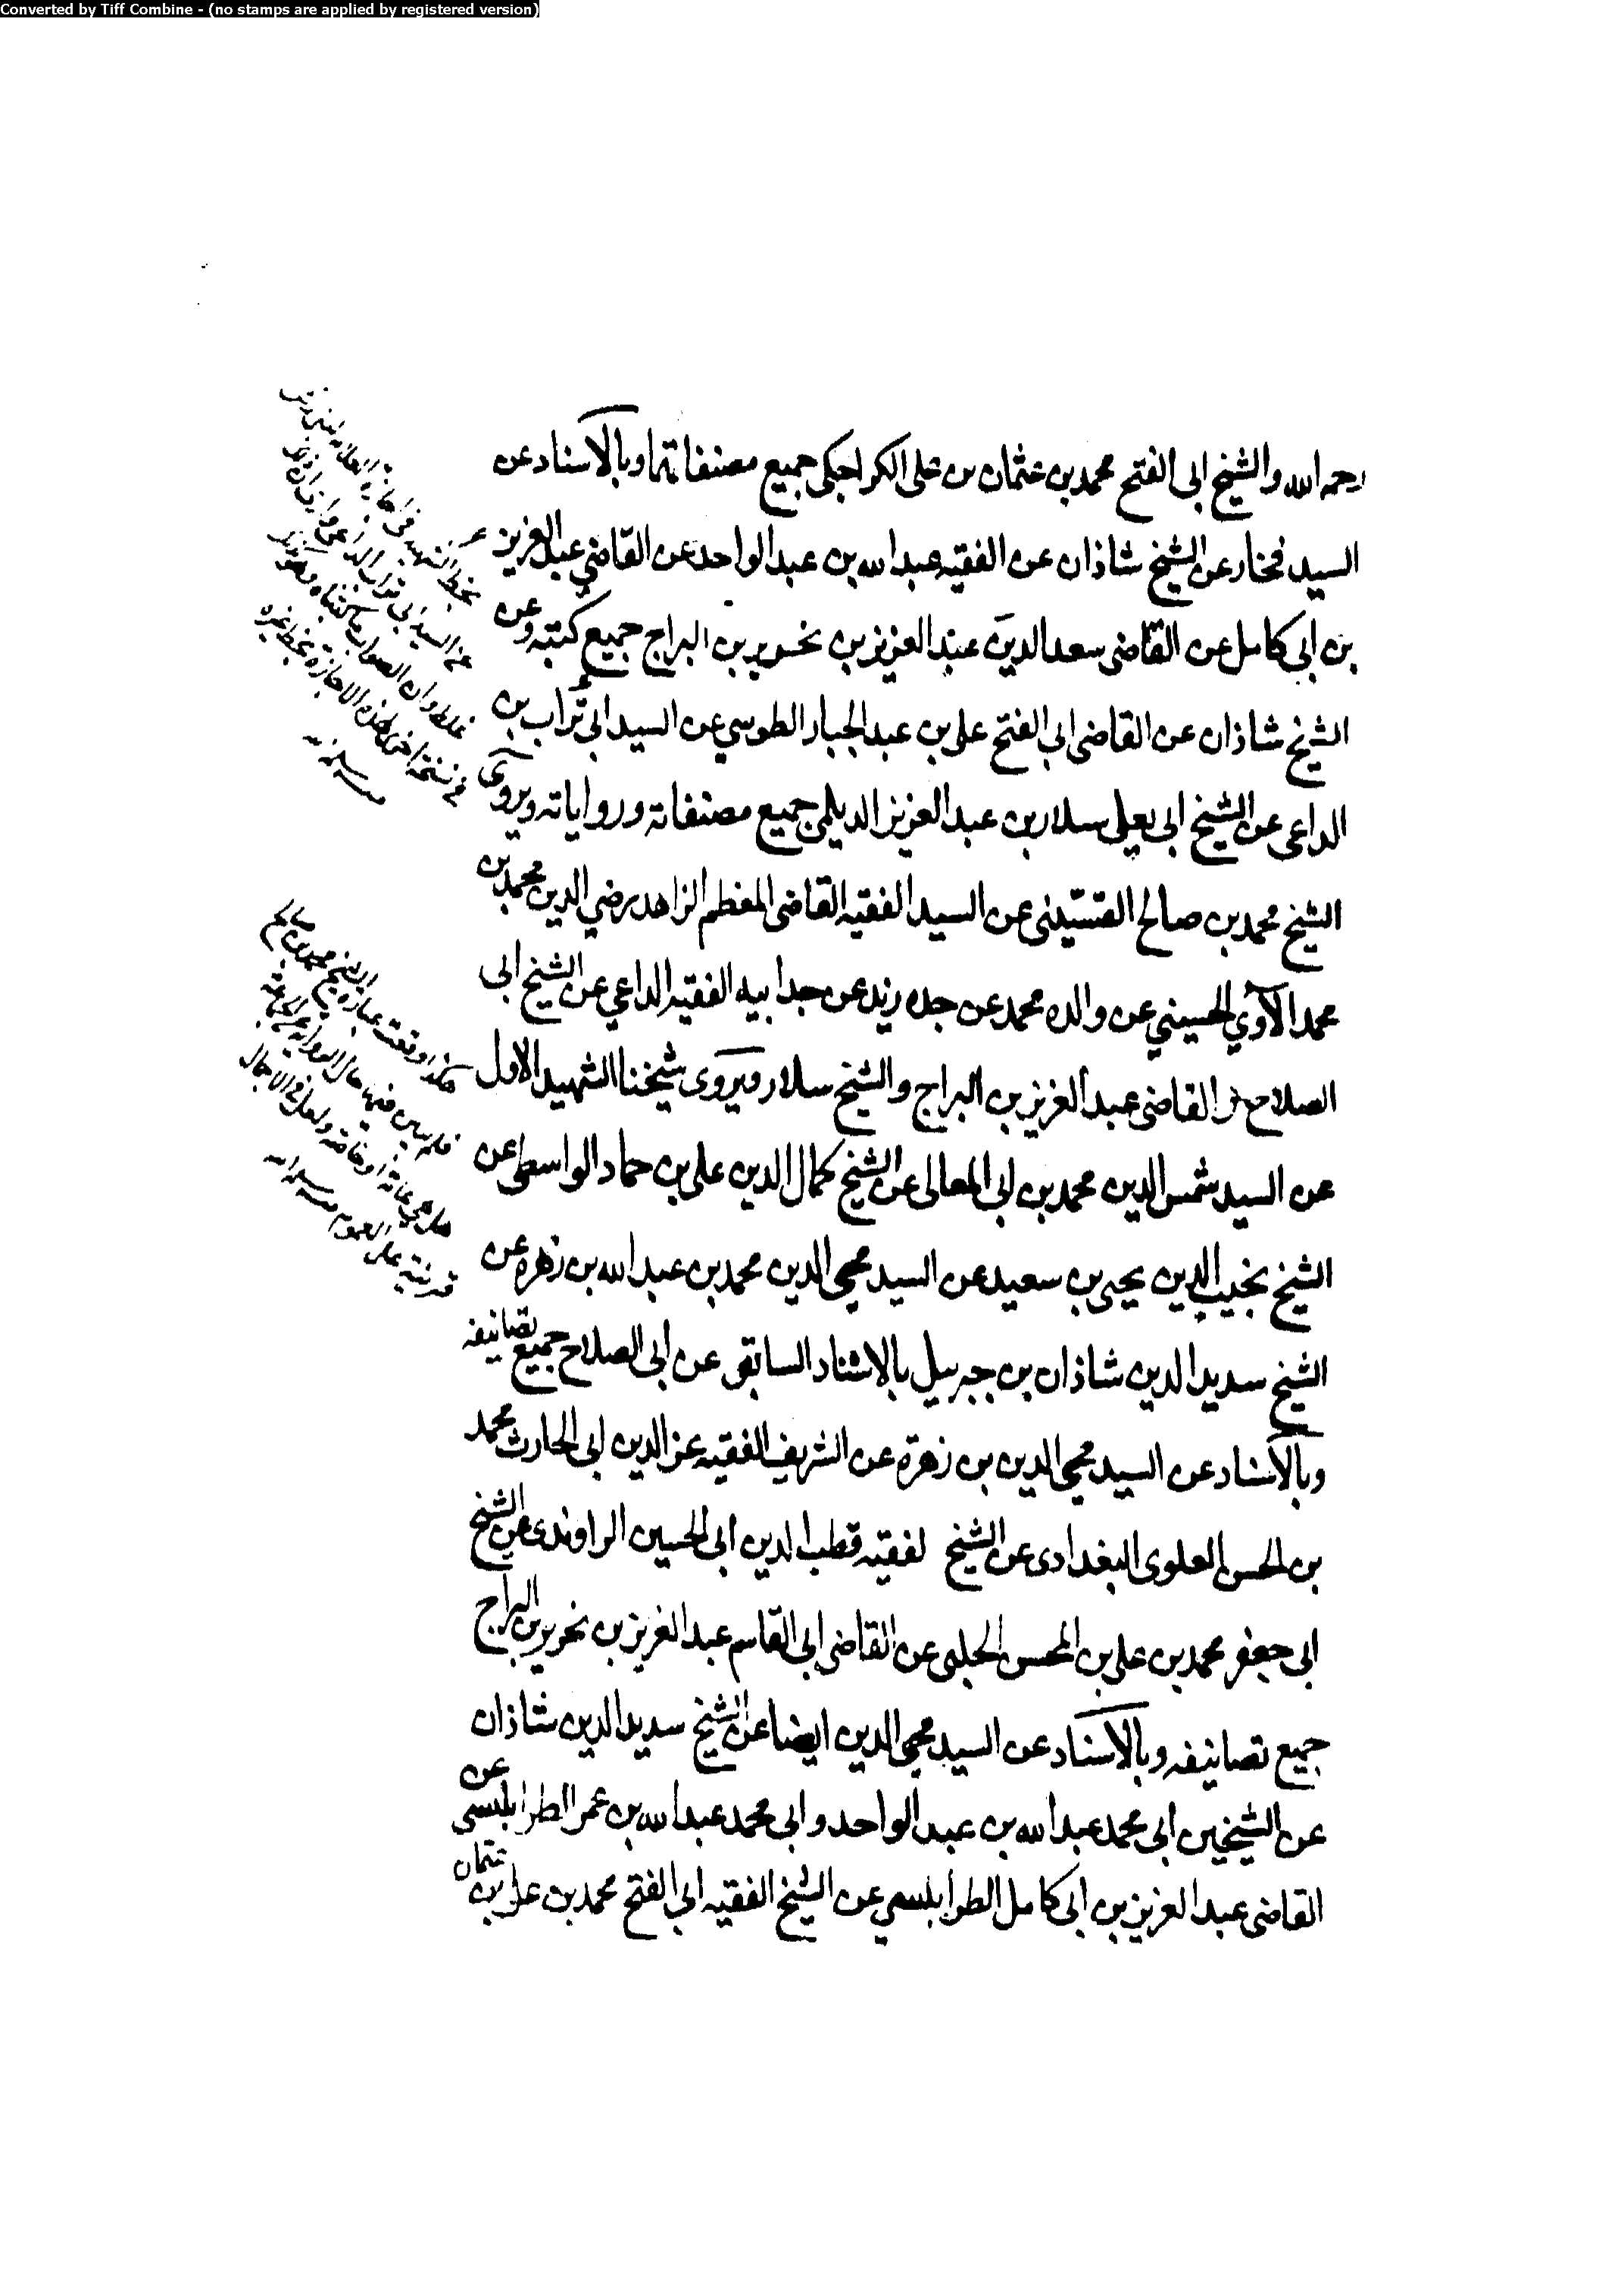 Converted by Tiff Combine - (no stamps are applied by registered version)
رحمه الله والشيخ ابى الفتح محمد بن عثمان بن على الكراجكى جميع مصنفاتهما وبالاسناد عن
السيد فخار عن الشيخ شاذان عن الفقيه عبد الله بن عبد الواحد عن القاضي عبد العزيز
بن ابى كامل عن القاضى سعد الدين عبد العزيز بن نحرير بن البراج جميع كتبه وعن
الشيخ شاذان عن القاضى ابى الفتح على بن عبد الجبار الطوسي عن السيد ابى تراب بن
الداعى عن الشيخ ابى يعلى سلار بن عبد العزيز الديلمى جميع مصنفاته ورواياته ويروى
الشيخ محمد بن صالح القسّينى عن السيد الفقيه القاضى المعظم الزاهد رضي الدين محمد بن
محمد الآوي الحسيني عن والده محمد عن جده زيد عن جد ابيه الفقيه الداعي عن الشيخ ابى
الصلاح والقاضى عبد العزيز بن البراج والشيخ سلار ويروى شيخنا الشهيد الاول
عن السيد شمس الدين محمد بن ابى المعالى عن الشيخ كمال الدين على بن حماد الواسطى عن
الشيخ نجيب الدين يحيى بن سعيد عن السيد محيى الدين محمد بن عبد الله بن زهره عن
الشيخ سديد الدين شاذان بن جبرئيل بالاسناد السابق عن ابى الصلاح جميع تصانيفه
وبالاسناد عن السيد محيى الدين بن زهرة عن الشريف الفقيه عز الدين ابى الحارث محمد
بن الحسن العلوى البغدادى عن الشيخ لفقيه قطب الدين ابى الحسين الراوندى عن الشيخ
ابى جعفر محمد بن على بن المحسن الحلبى عن القاضى ابى القاسم عبد العزيز بن نحرير بن البراج
جميع تصانيفه وبالاسناد عن السيد محيى الدين ايضا عن الشيخ سديد الدين شاذان
عن الشيخين ابى محمد عبد الله بن عبد الواحد وابى محمد عبد الله بن عمر الطرابلسى عن
القاضى عبد العزيز بن ابى كامل الطرابلسي عن الشيخ الفقيه ابى الفتح محمد بن على بن عثمان
بخط الشهيد في اجازة العلامة
عن السيد ابى تراب الداعى
غلط وان الصواب ما كتبناه وهو
في نسخة اخرى لهذه الاجازة بخط غيره
هكذا وقعت عبارة الشيخ محمد بن صالح
فلم يبين فيها حال الرواية
هل هي عامة او خاصة ولعل في الاجمال
قرينة على العموم